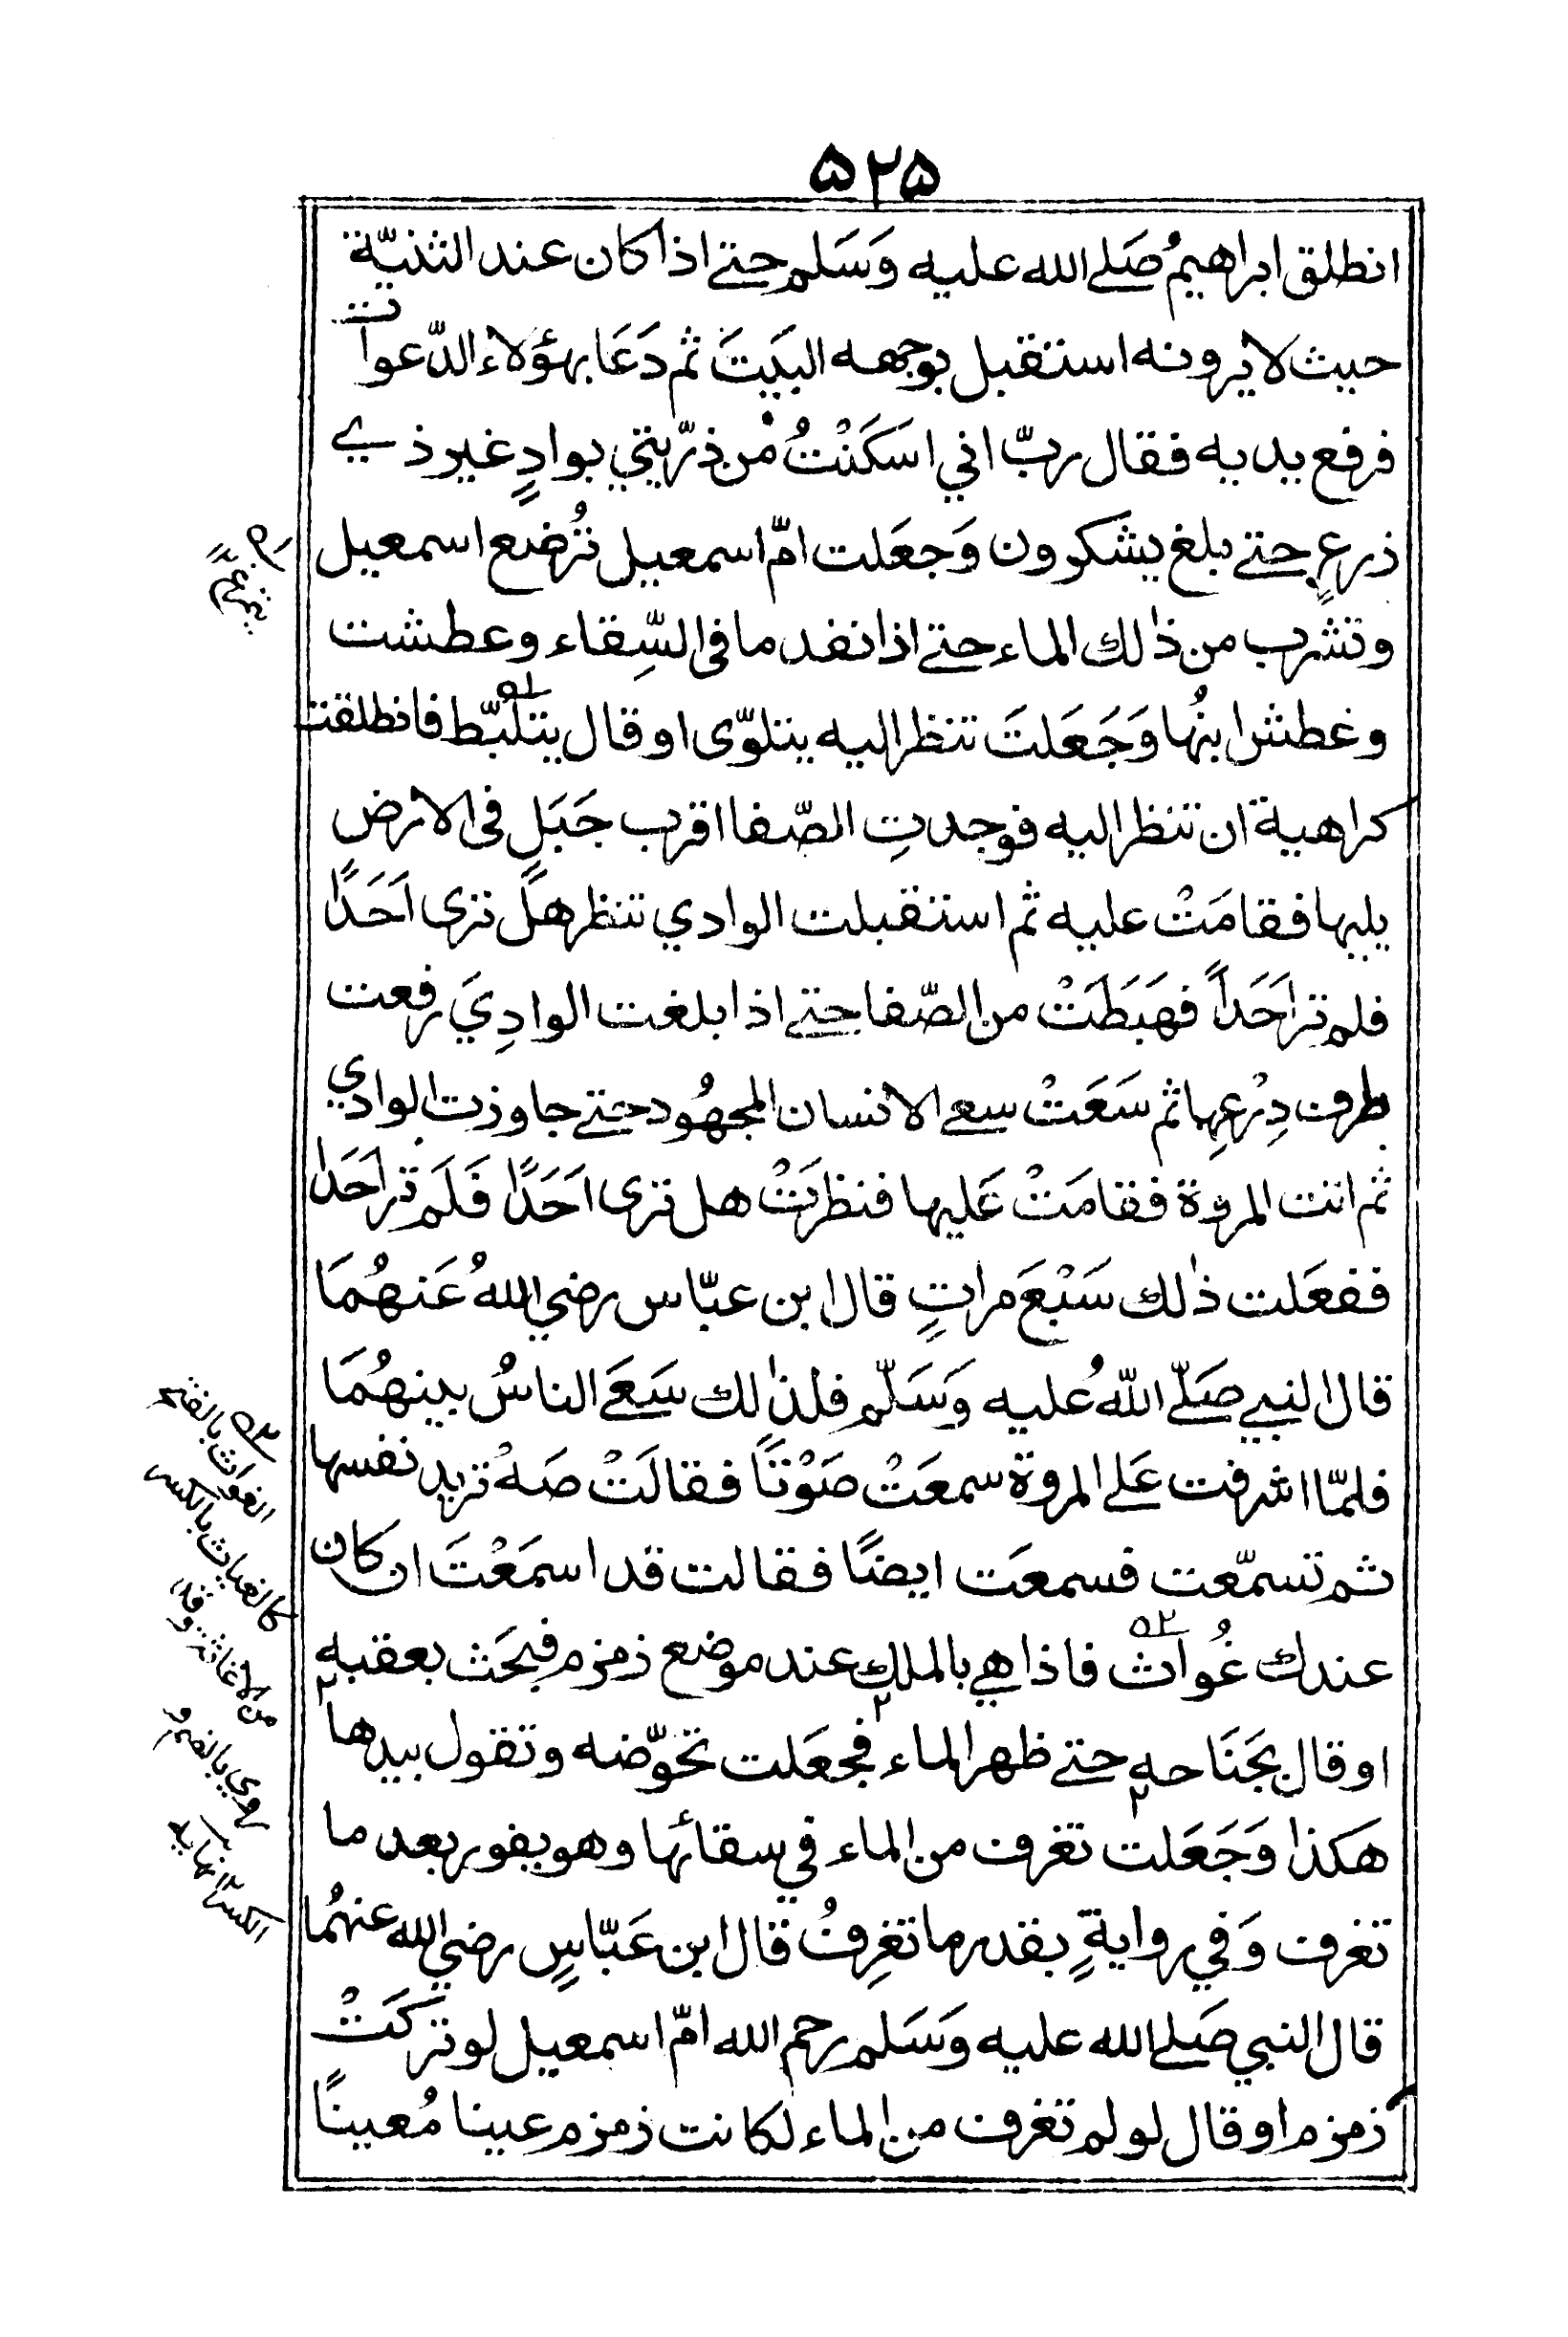 ۵۲۵
انطلق ابراهيمُ صَلے الله عليه وَسَلم حتے اذا كان عند الثنيّة
حيث لا يرونه استقبل بوجهه البَيتَ ثم دَعَا بهؤلاء الدّعوات
فرفع يديه فقال ربّ اني اسكَنْتُ من ذرّيتي بوادٍ غير ذي
ذرعٍ حتے بلغ يشكرون وَجعَلت امّ اسمعيل تُرضع اسمعيل
وتشرب من ذٰلك الماء حتے اذا نفد ما فى السِّقاء وعطشت
وغطش ابنُها وَجَعَلتَ تنظر اليه يتلوّى او قال يتلبّط فانطلقت
كراهية ان تنظر اليه فوجدتِ الصّفا اقرب جَبَلٍ فى الارض
يليها فقامَتْ عليه ثم استقبلت الوادي تنظر هلْ ترى اَحَدًا
فلم تر اَحَداً فهَبَطَتْ من الصّفا حتے اذا بلغت الوادِيَ رفعت
طرف دِرْعِها ثم سَعَتْ سعے الانسان المجهُود حتے جاوزت الوادي
ثم اتت المروة فقامَتْ عَليها فنظرَتْ هل ترى اَحَدًا فَلَم تر اَحَدا
ففعَلت ذٰلك سَبْعَ مراتٍ قال ابن عبّاس رضي اللهُ عَنهُمَا
قال النبي صَلّے اللّهُ عليه وَسَلّم فلذٰلك سَعَے الناسُ بينهُمَا
فلمّا اشرفت عَلے المروة سمعَتْ صَوْتًا فقالَتْ صَهْ تريد نفسها
ثم تسمّعت فسمعَت ايضًا فقالت قد اسمَعْتَ ان كان
عندك غُواث فاذا هي بالملك عند موضع زمزم فبحَث بعقبه
او قال بجَنَاحه حتے ظهر الماء فجعَلت تحوّضه وتقول بيدها
هكذا وَجَعَلت تغرف من الماء في سقائها وهو يفور بعد ما
تغرف وَفي روايةٍ بقدر ما تغرِفُ قال ابن عَبّاسٍ رضي الله عنهُما
قال النبي صَلے الله عليه وَسَلم رحم الله امّ اسمعيل لو تركَتْ
زمزم او قال لو لم تغرف من الماء لكانت زمزم عينا مُعينًا
الغواث بالفتح
كالغياث بالكسر
من الاغاثة وقد
روي بالضم و
الكسر نهاية